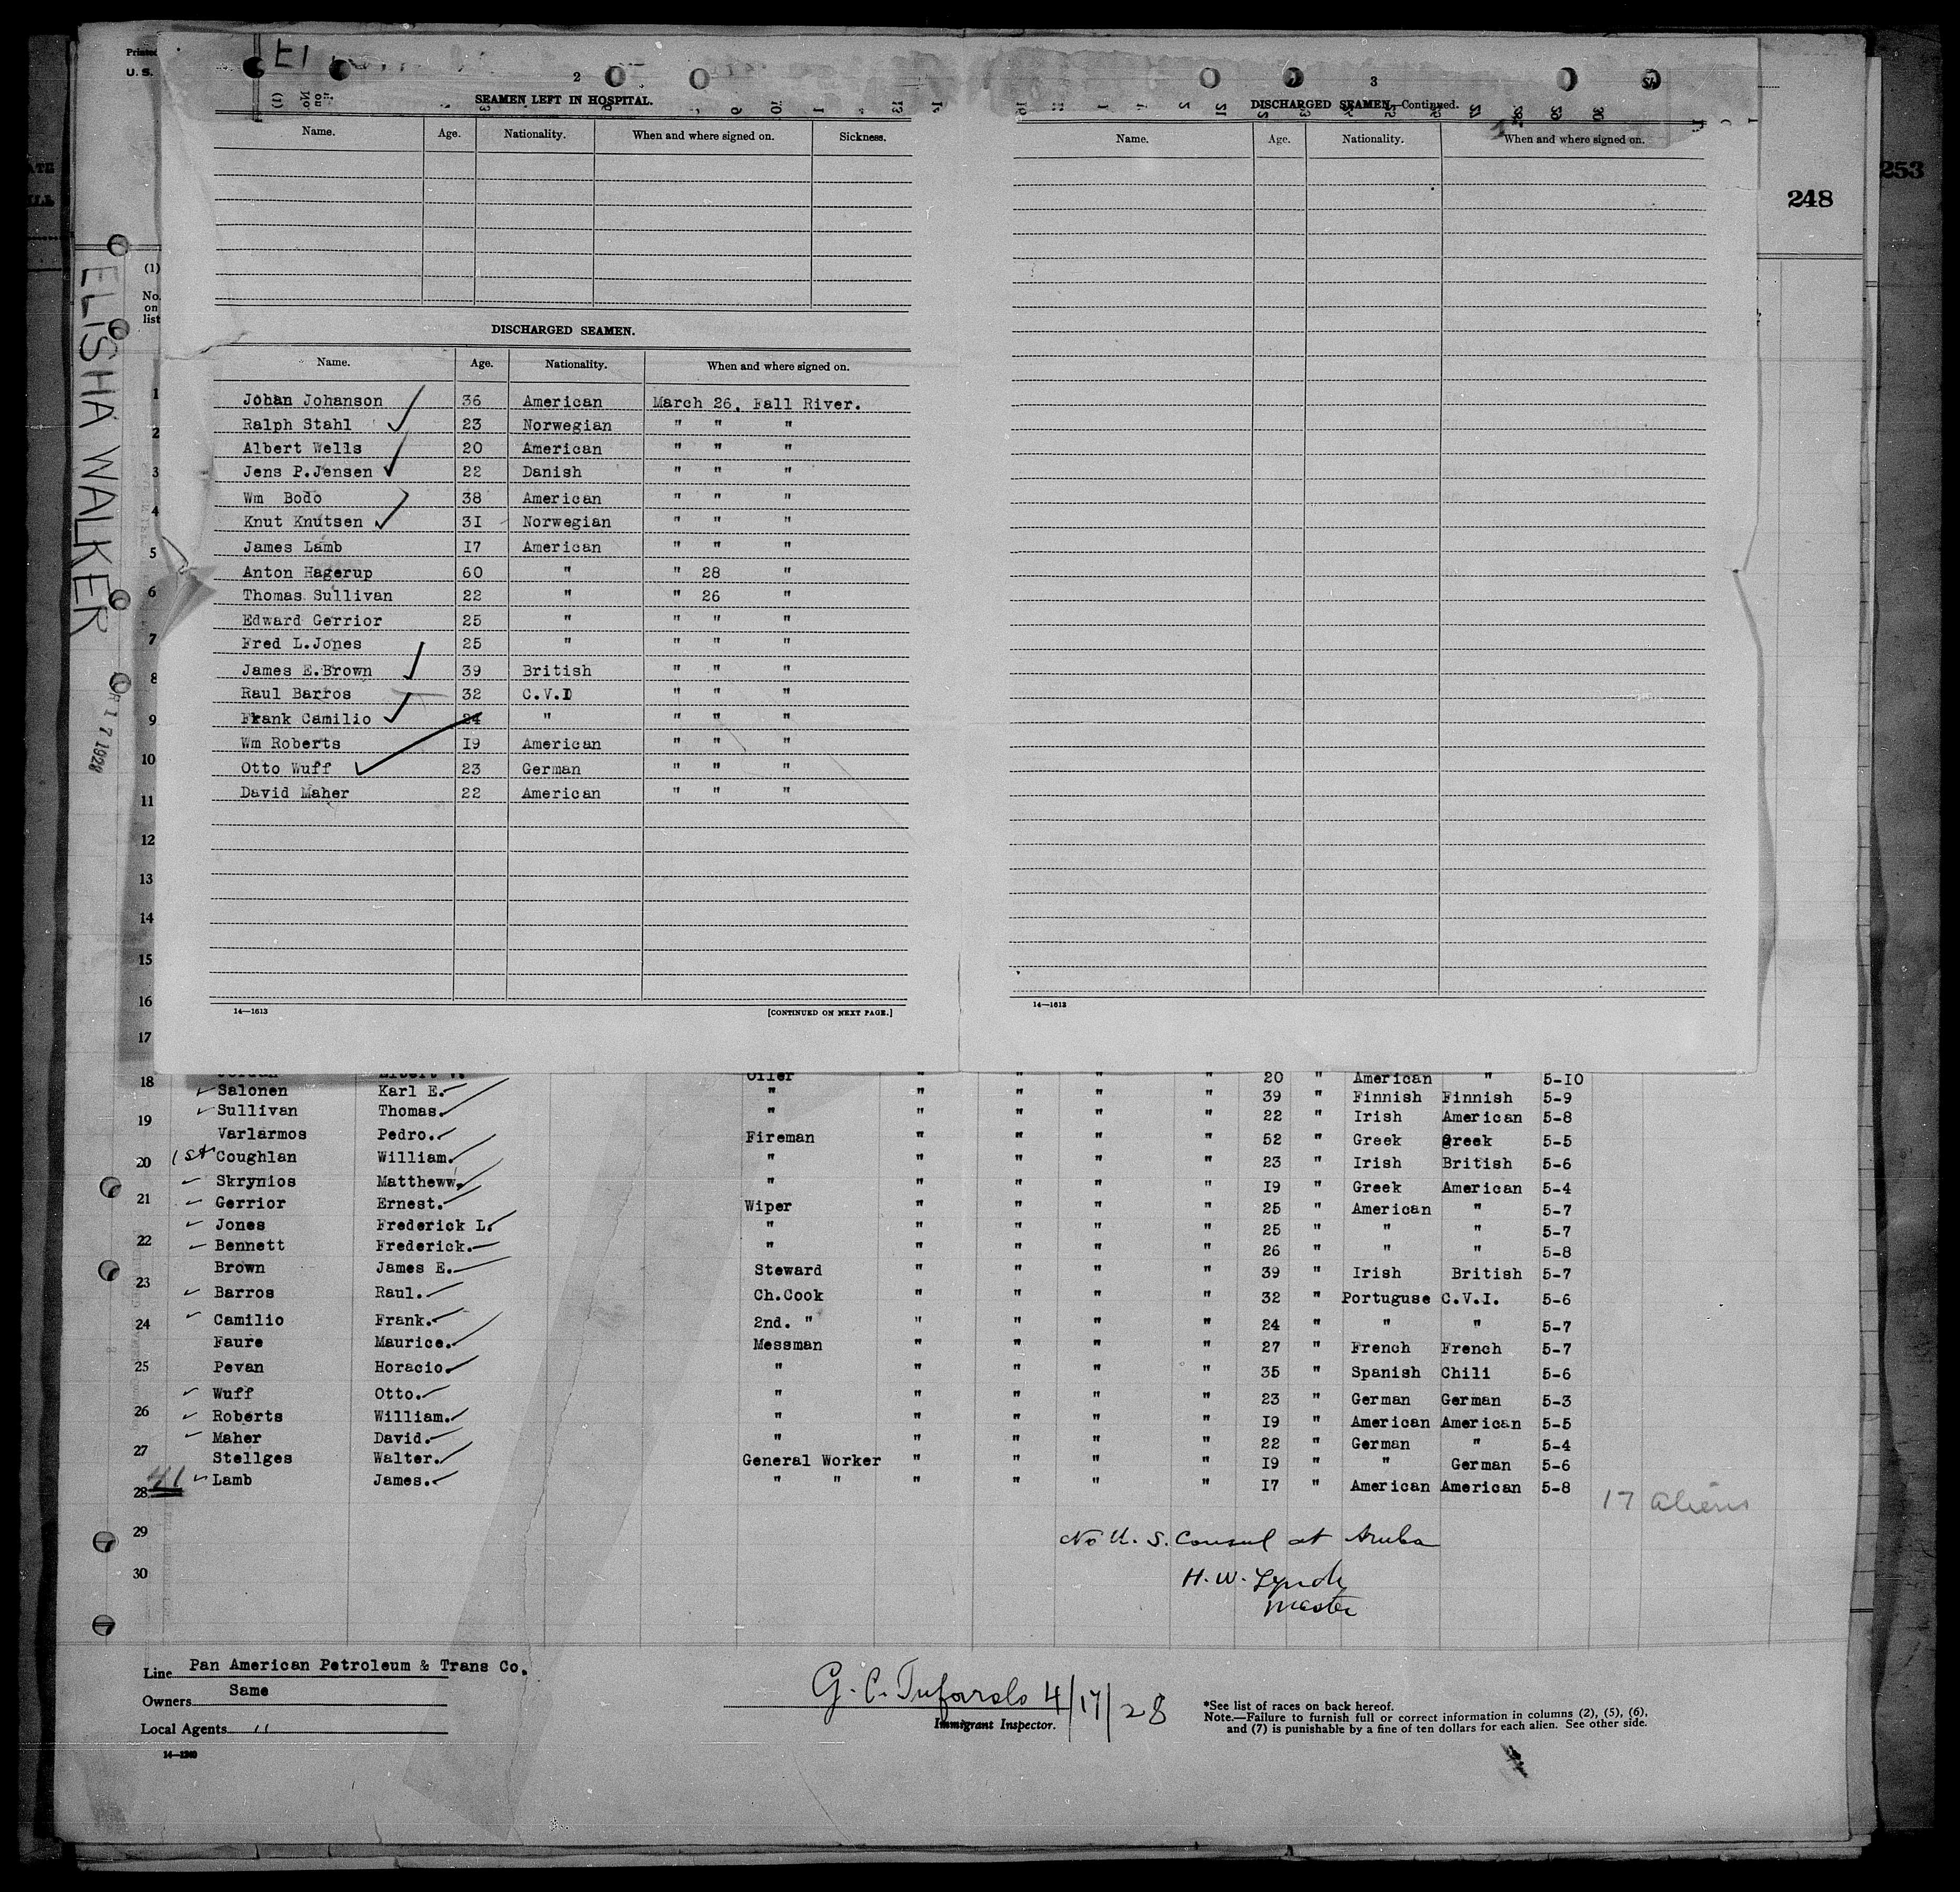 Printed
U. S.
253
248
ELISHA WALKER
17 1928
(1)
No.
on
list
2
SEAMEN LEFT IN HOSPITAL.
Name. Age. Nationality. When and where signed on. Sickness.
DISCHARGED SEAMEN.
Name. Age. Nationality. When and where signed on.
Johan Johanson 36 American March 26, Fall River.
Ralph Stahl 23 Norwegian " " "
Albert Wells 20 American " " "
Jens P.Jensen 22 Danish " " "
Wm Bodo 38 American " " "
Knut Knutsen 31 Norwegian " " "
James Lamb 17 American " " "
Anton Hagerup 60 " " 28 "
Thomas Sullivan 22 " " 26 "
Edward Gerrior 25 " " " "
Fred L.Jones 25 " " " "
James E.Brown 39 British " " "
Raul Barros 32 C.V.I " " "
Frank Camilio 24 " " " "
Wm Roberts 19 American " " "
Otto Wuff 23 German " " "
David Maher 22 American " " "
14—1613 [CONTINUED ON NEXT PAGE.]
3
DISCHARGED SEAMEN—Continued.
Name. Age. Nationality. When and where signed on.
14—1613
1
2
3
4
5
6
7
8
9
10
11
12
13
14
15
16
17
18
19
20
21
22
23
24
25
26
27
28
29
30
Jordan Elbert V. Oiler " " " " 20 " American " 5-10
Salonen Karl E. " " " " " 39 " Finnish Finnish 5-9
Sullivan Thomas. " " " " " 22 " Irish American 5-8
Varlarmos Pedro. Fireman " " " " 52 " Greek Greek 5-5
1st Coughlan William. " " " " " 23 " Irish British 5-6
Skrynios Matthew. " " " " " 19 " Greek American 5-4
Gerrior Ernest. Wiper " " " " 25 " American " 5-7
Jones Frederick L. " " " " " 25 " " " 5-7
Bennett Frederick. " " " " " 26 " " " 5-8
Brown James E. Steward " " " " 39 " Irish British 5-7
Barros Raul. Ch.Cook " " " " 32 " Portuguse C.V.I. 5-6
Camilio Frank. 2nd. " " " " " 24 " " " 5-7
Faure Maurice. Messman " " " " 27 " French French 5-7
Pevan Horacio. " " " " " 35 " Spanish Chili 5-6
Wuff Otto. " " " " " 23 " German German 5-3
Roberts William. " " " " " 19 " American American 5-5
Maher David. " " " " " 22 " German " 5-4
Stellges Walter. General Worker " " " " 19 " " German 5-6
41 Lamb James. " " " " " " 17 " American American 5-8
17 aliens
No U. S. Consul at Aruba
H. W. Lynch
Master
Line Pan American Petroleum & Trans Co.
Owners Same
Local Agents "
14—1240
G. C. Tufarolo 4/17/28
Immigrant Inspector.
*See list of races on back hereof.
Note.—Failure to furnish full or correct information in columns (2), (5), (6),
and (7) is punishable by a fine of ten dollars for each alien. See other side.